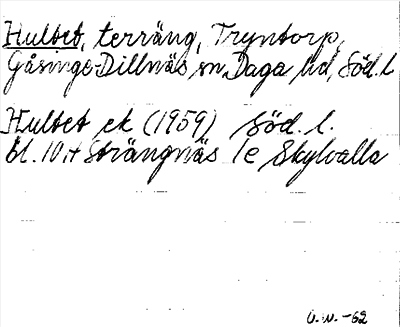 Hultet, terräng, Tryntorp,
Gåsinge-Dillnäs sn, Daga hd, Söd. l.
Hultet ek (1959) Söd. l.
bl. 10, t Strängnäs 1e Skylvalla
U.N.-62